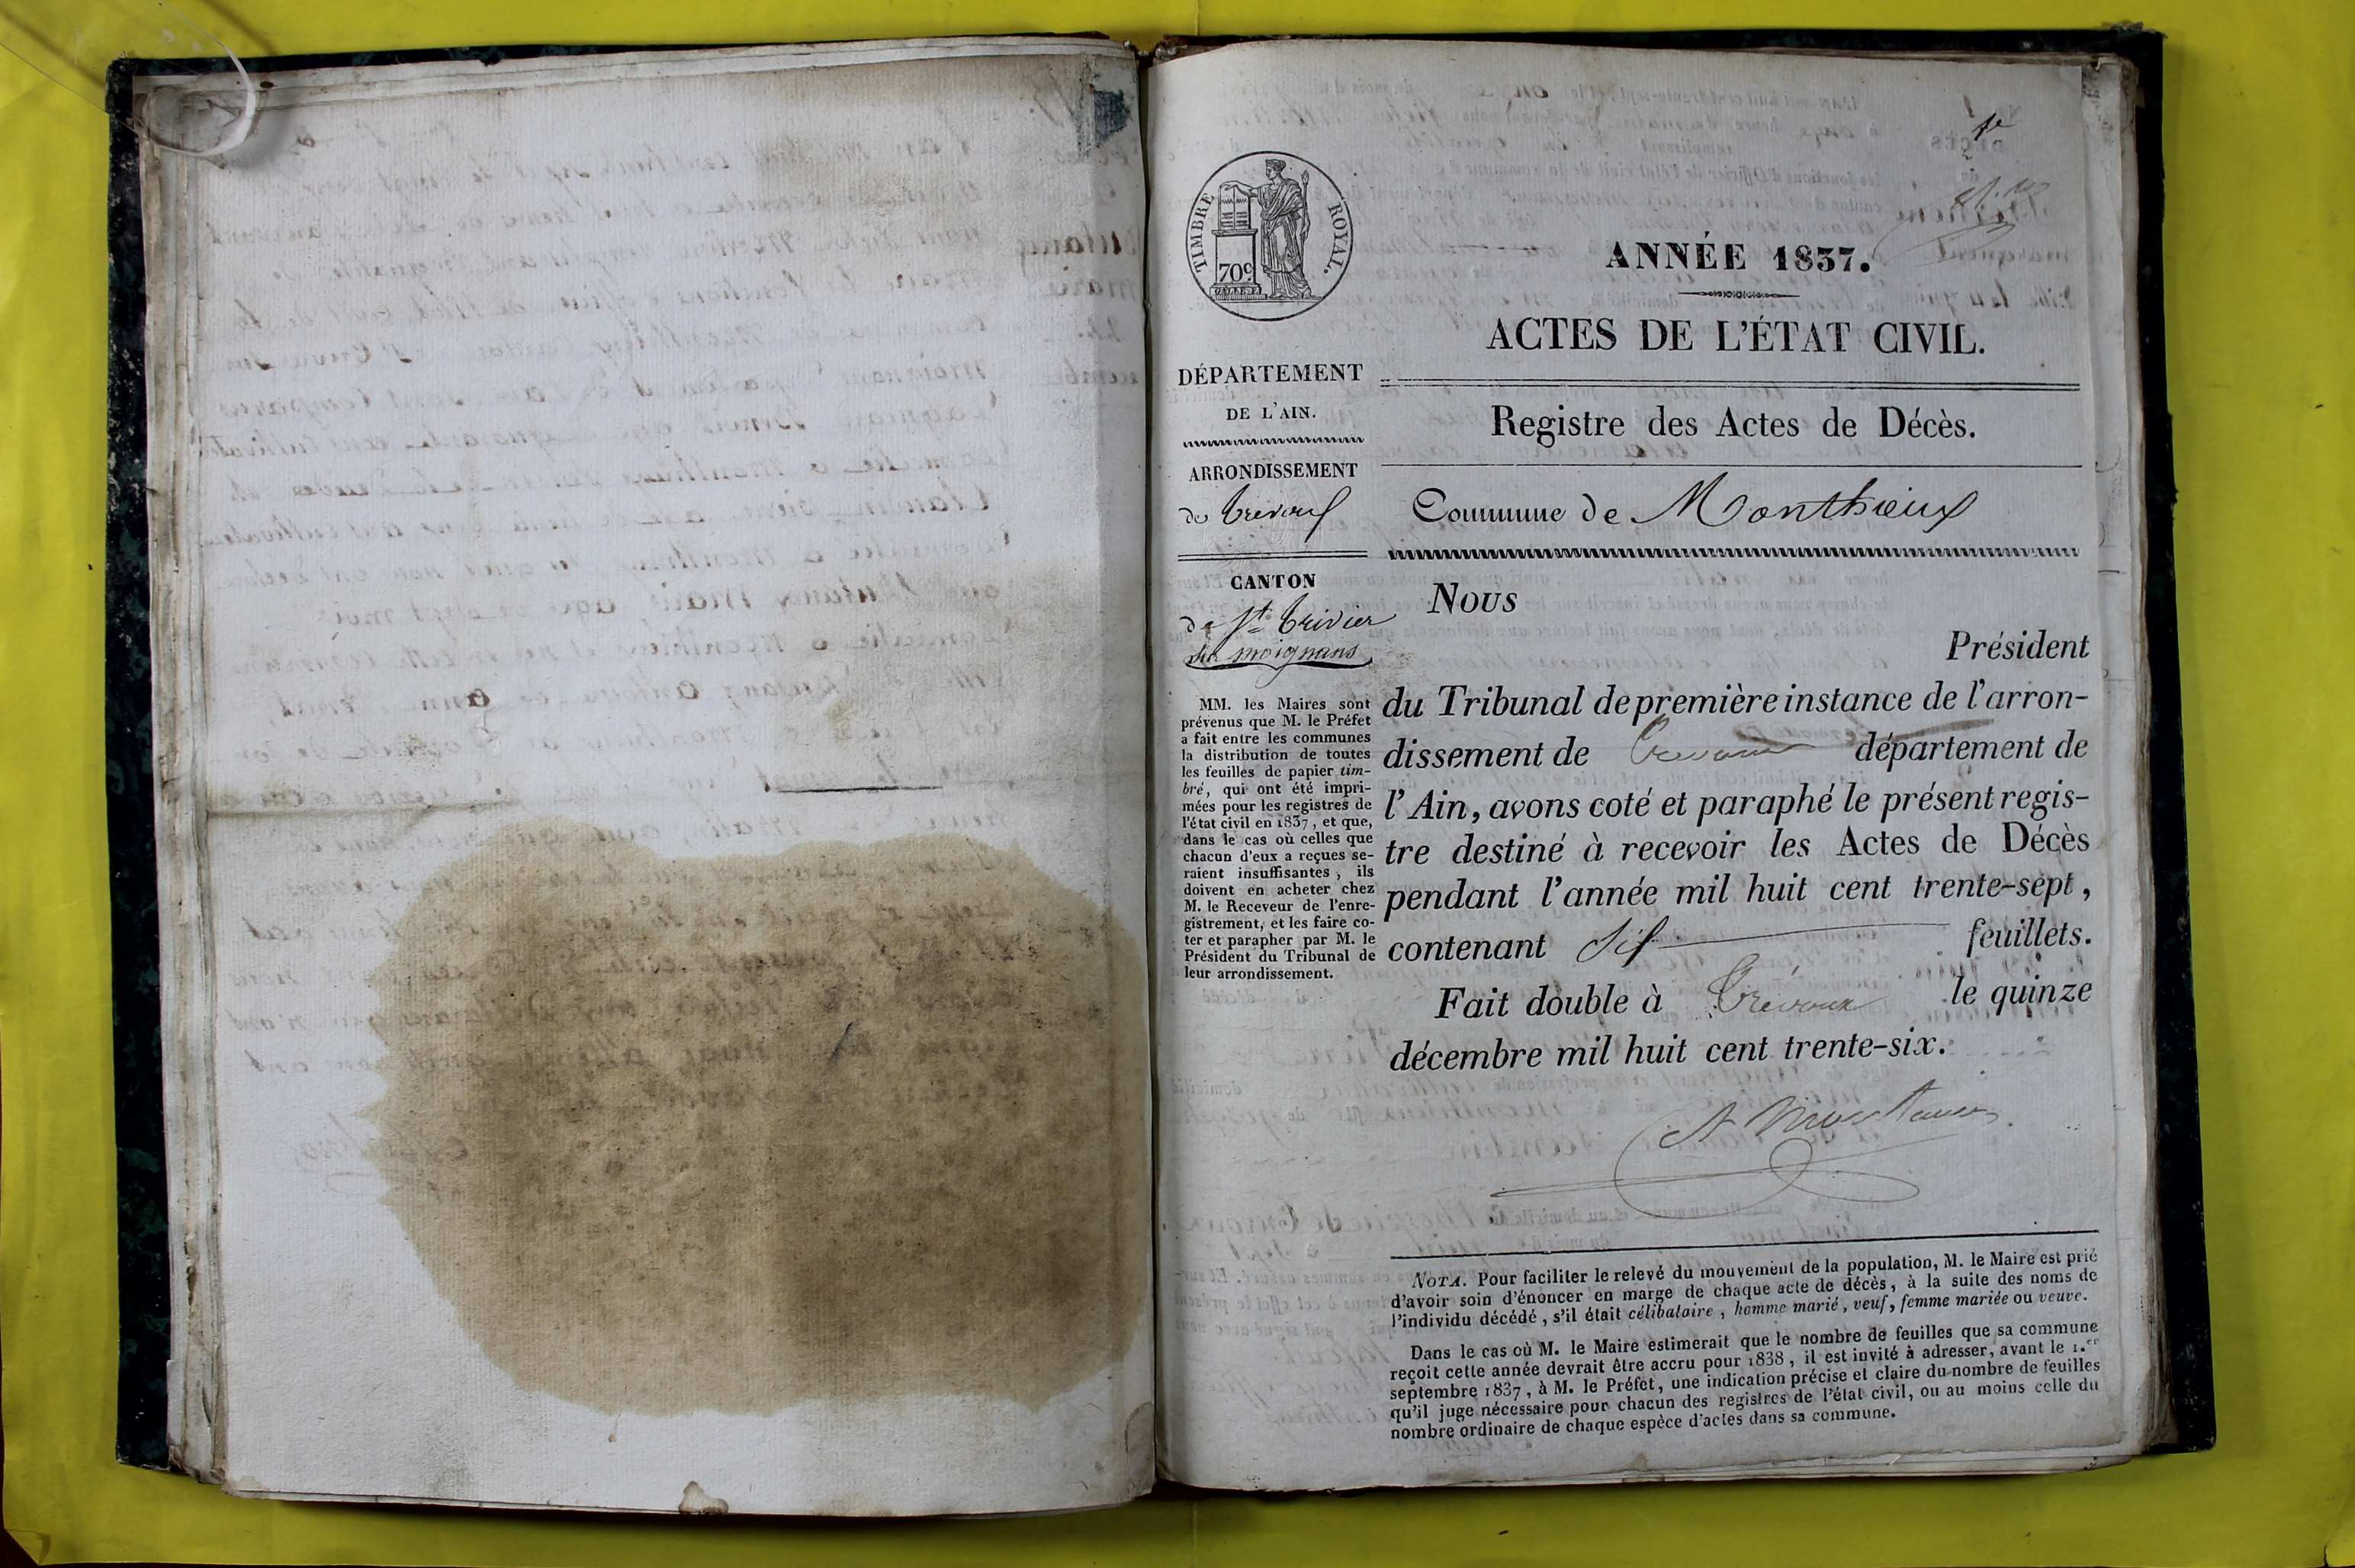 1e
TIMBRE ROYAL.
70c
ANNÉE 1837.
ACTES DE L'ÉTAT CIVIL.
DÉPARTEMENT
DE L'AIN.
Registre des Actes de Décès.
ARRONDISSEMENT
de Trevoux
Commune de Monthieux
CANTON
de St Trivier
sur moignans
MM. les Maires sont
prévenus que M. le Préfet
a fait entre les communes
la distribution de toutes
les feuilles de papier tim-
bré, qui ont été impri-
mées pour les registres de
l'état civil en 1837, et que,
dans le cas où celles que
chacun d'eux a reçues se-
raient insuffisantes, ils
doivent en acheter chez
M. le Receveur de l'enre-
gistrement, et les faire co-
ter et parapher par M. le
Président du Tribunal de
leur arrondissement.
Nous
Président
du Tribunal de première instance de l'arron-
dissement de Trevoux département de
l'Ain, avons coté et paraphé le présent regis-
tre destiné à recevoir les Actes de Décès
pendant l'année mil huit cent trente-sept,
contenant Six feuillets.
Fait double à Trévoux le quinze
décembre mil huit cent trente-six.
NOTA. Pour faciliter le relevé du mouvement de la population, M. le Maire est prié
d'avoir soin d'énoncer en marge de chaque acte de décès, à la suite des noms de
l'individu décédé, s'il était célibataire, homme marié, veuf, femme mariée ou veuve.
Dans le cas où M. le Maire estimerait que le nombre de feuilles que sa commune
reçoit cette année devrait être accru pour 1838, il est invité à adresser, avant le 1.er
septembre 1837, à M. le Préfet, une indication précise et claire du nombre de feuilles
qu'il juge nécessaire pour chacun des registres de l'état civil, ou au moins celle du
nombre ordinaire de chaque espèce d'actes dans sa commune.